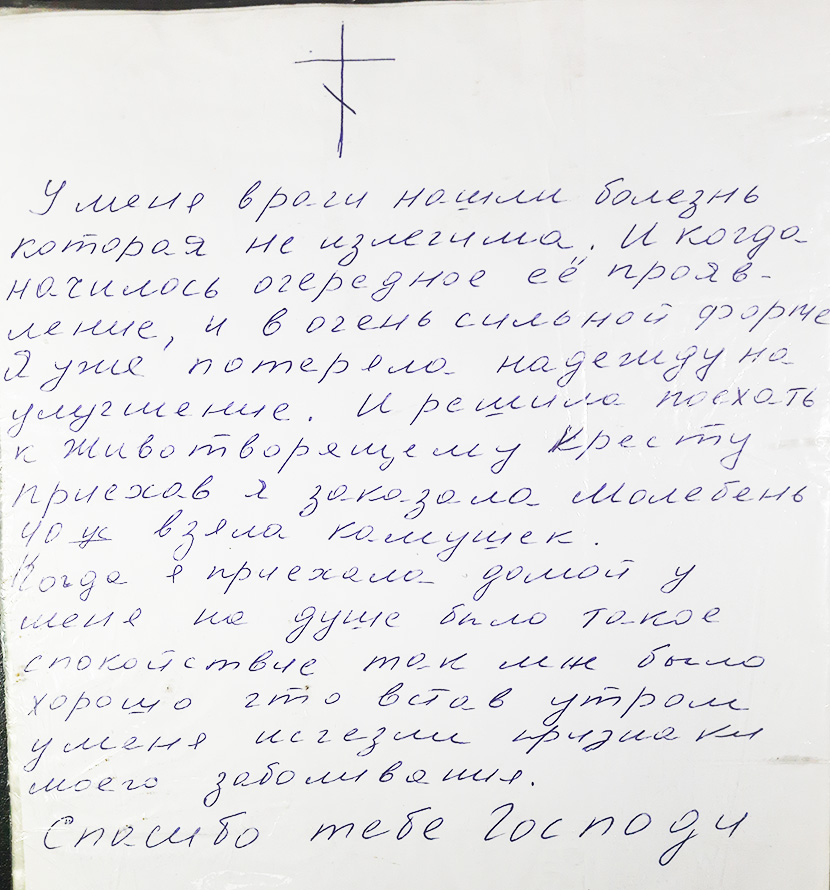 У меня врачи нашли болезнь
которая не излечима. И когда
начилось очередное её прояв-
ление, и в очень сильной форме
Я уже потеряла надежду на
улучшение. И решила поехать
к Животворящему Кресту
приехав я заказала Молебень
40 ус взяла камушек.
Когда я приехала домой у
меня на душе было такое
спокойствие так мне было
хорошо что встав утром
у меня исчезли признаки
моего заболивания.
Спасибо тебе Господи